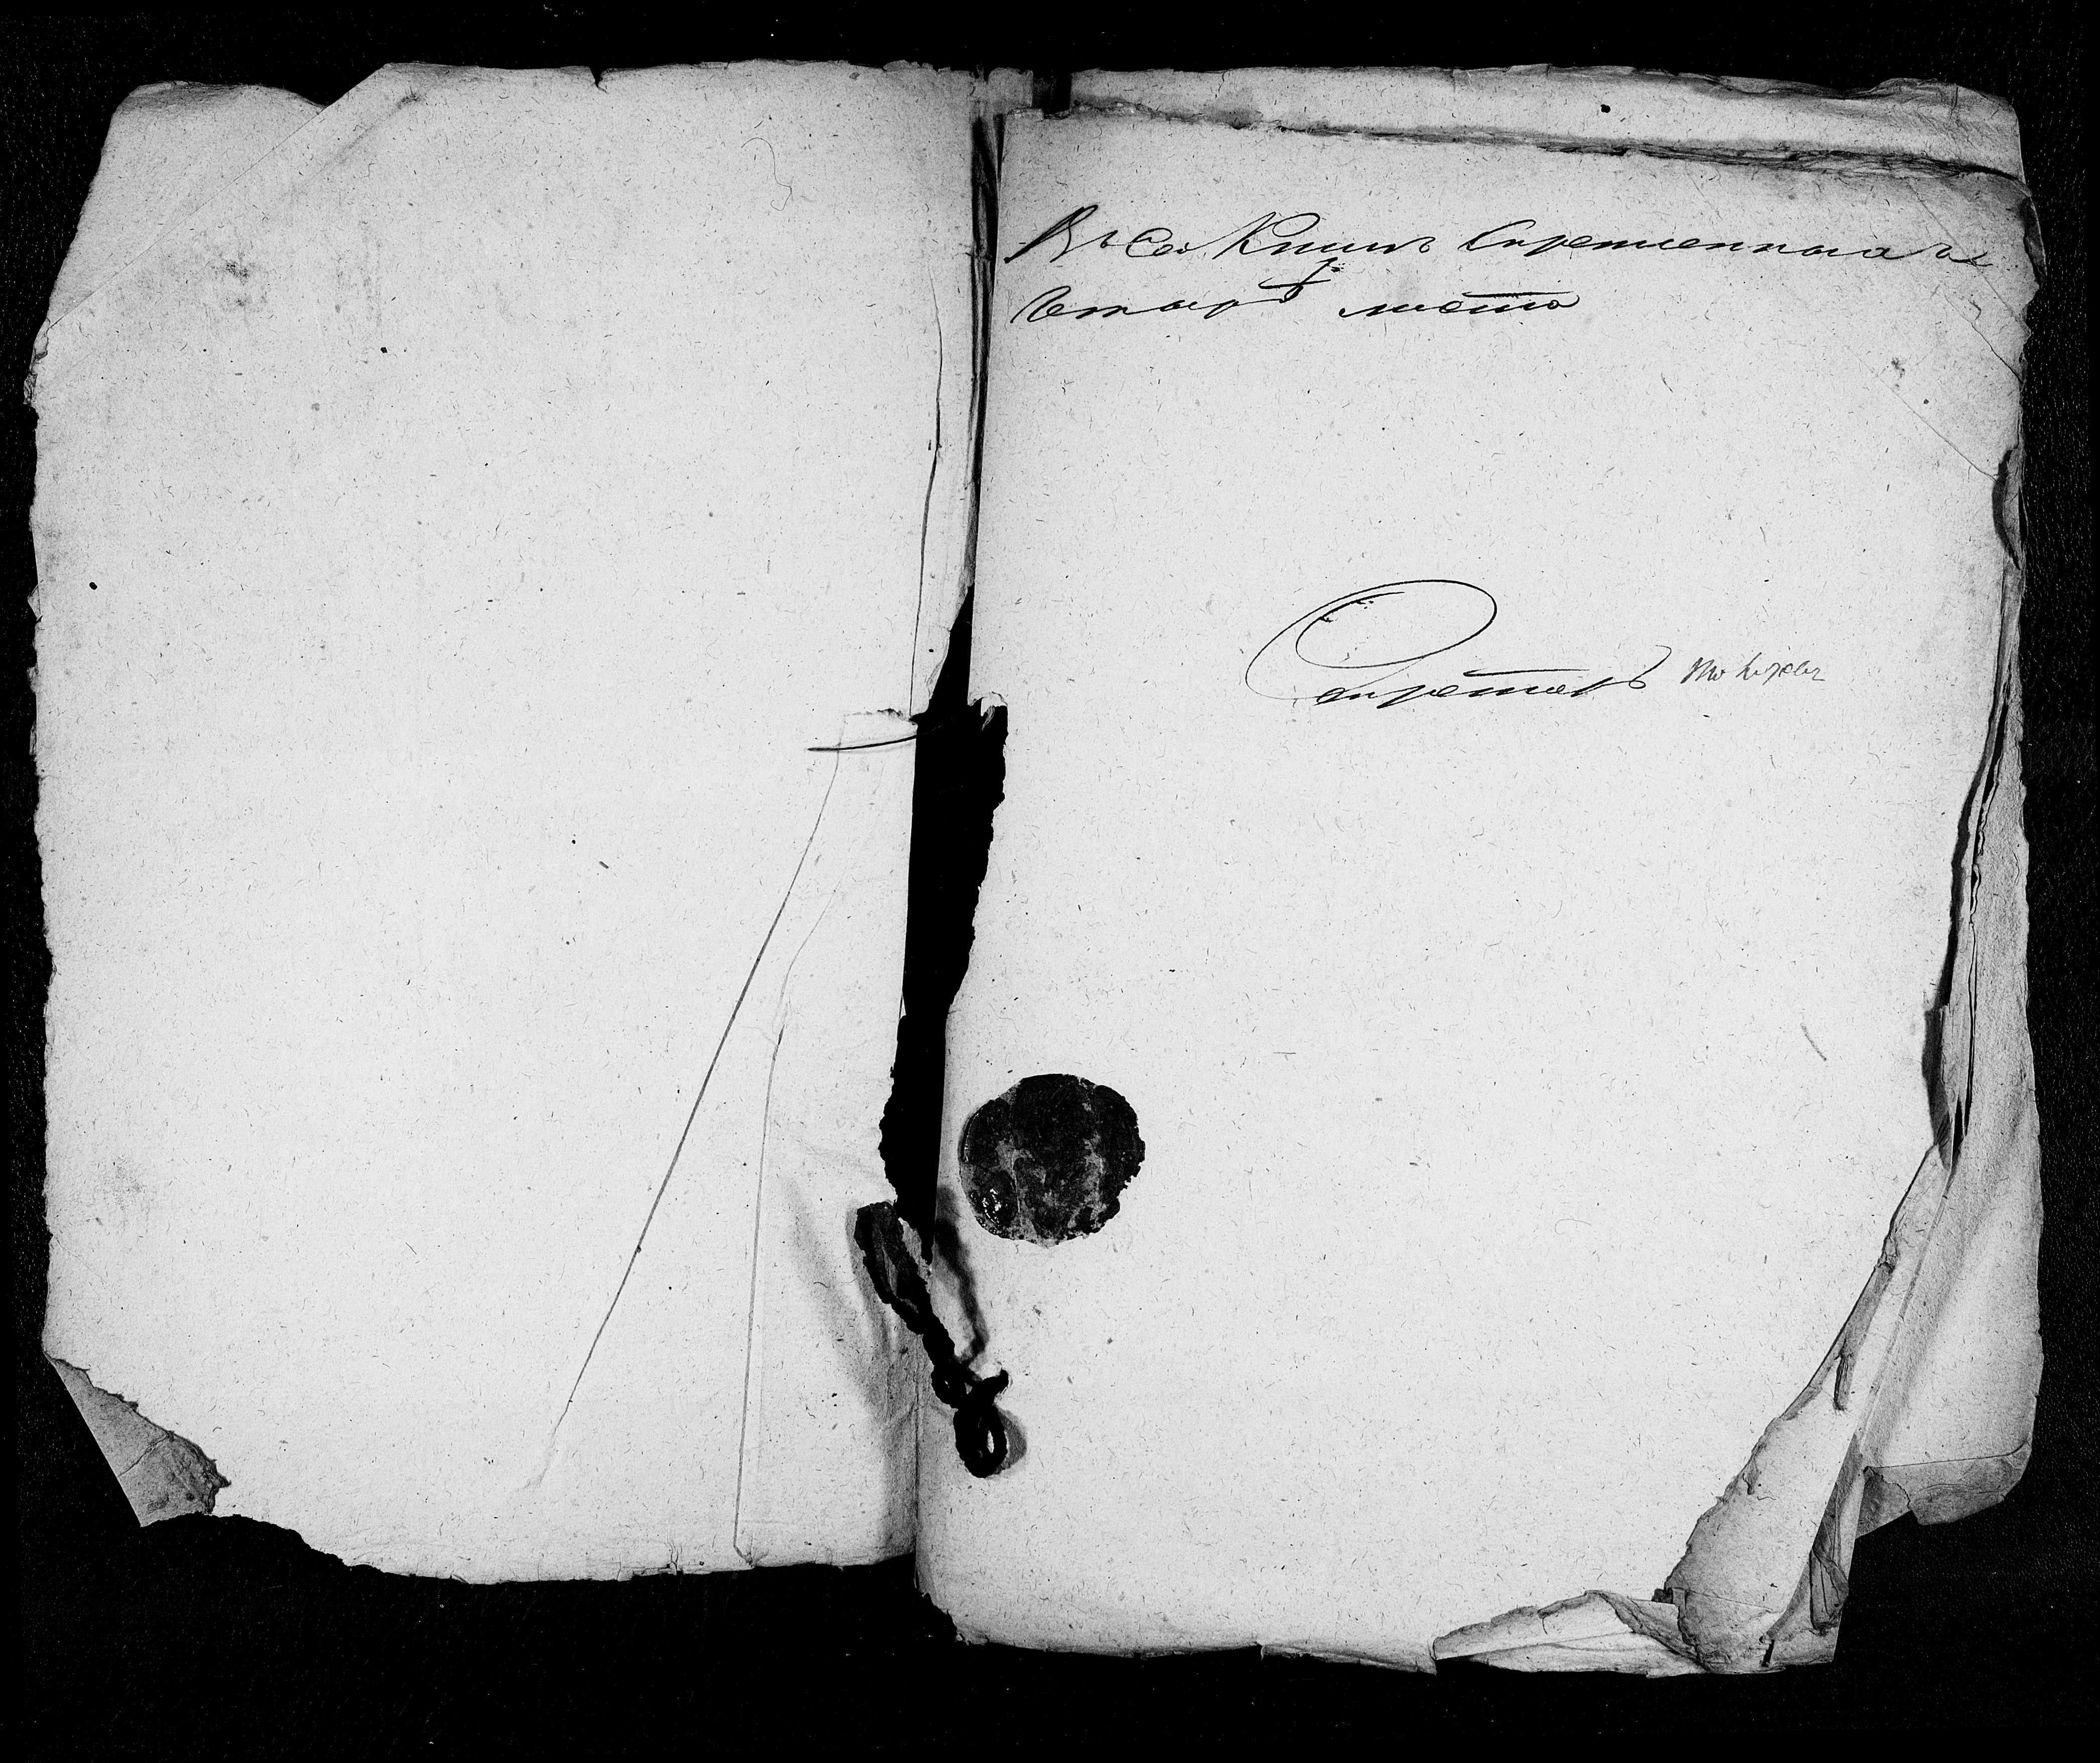 Въ сей Книгѣ Скрепленныхъ
Четыре листа
Секретарь